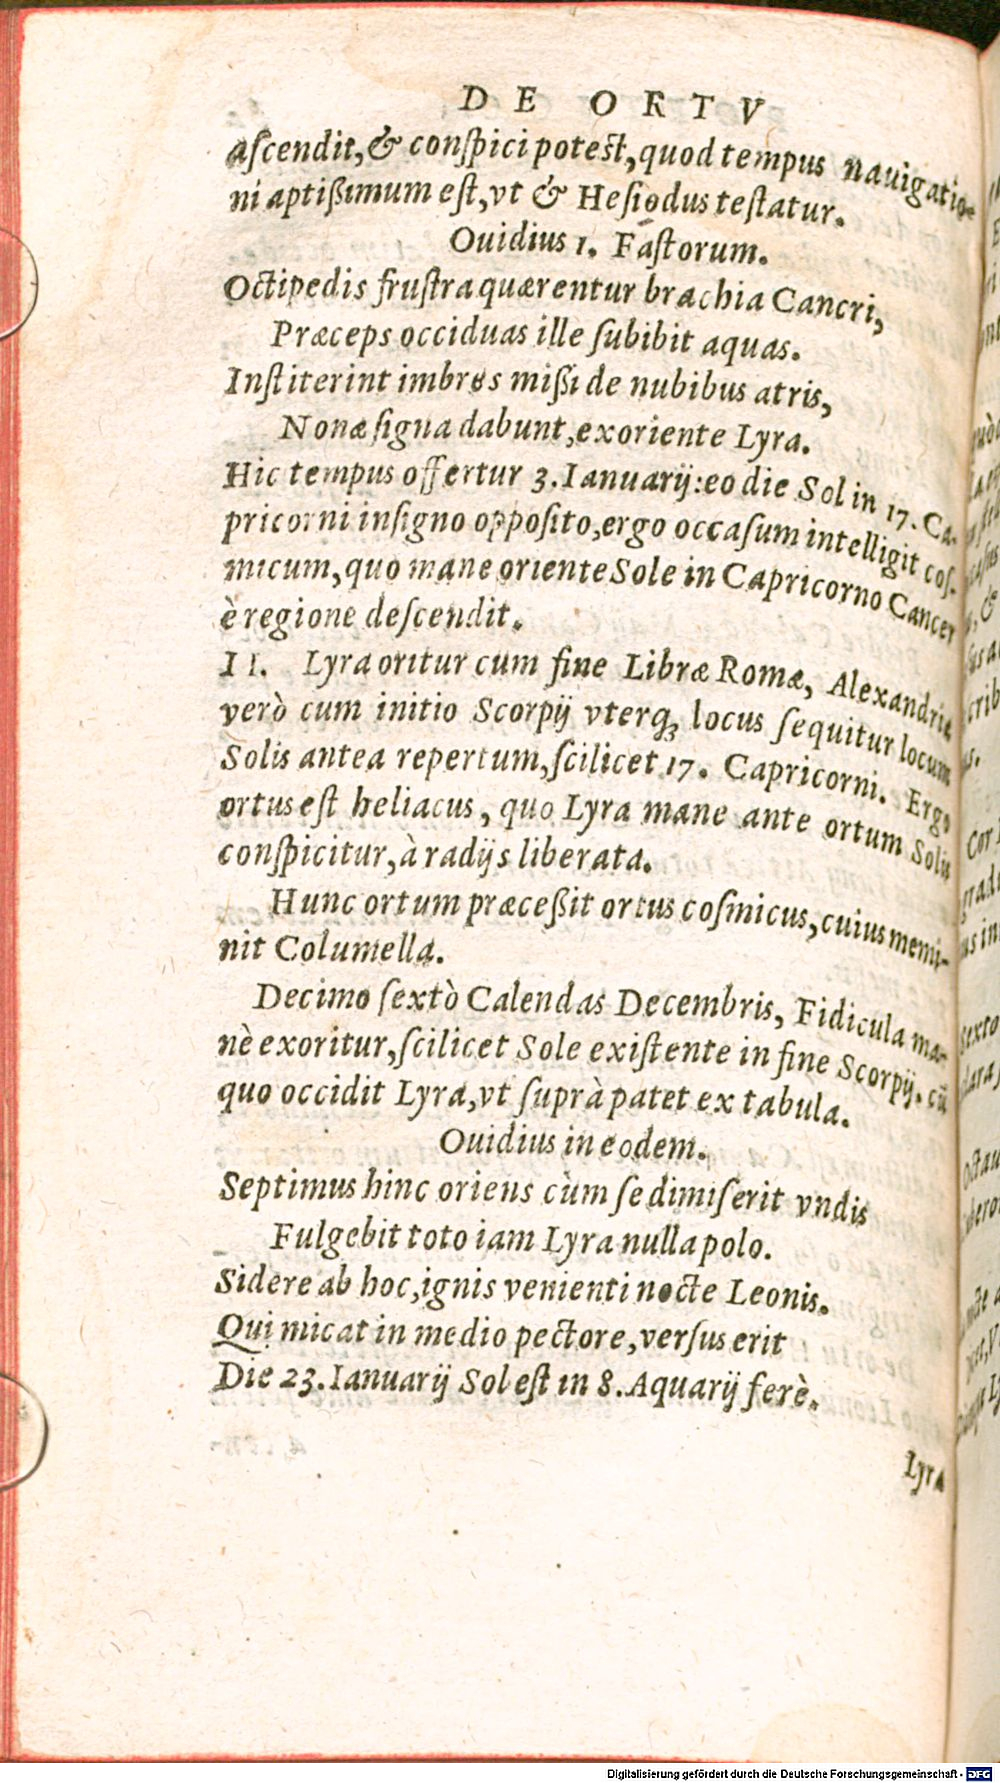 DE ORTV
aſcendit, & conſpici poteſt, quod tempus nauigatio-
ni aptißimum eſt, vt & Heſiodus teſtatur.
Ouidius 1. Faſtorum.
Octipedis fruſtra quærentur brachia Cancri,
Præceps occiduas ille ſubibit aquas.
Inſtiterint imbres mißi de nubibus atris,
Nonæ ſigna dabunt, exoriente Lyra.
Hic tempus offertur 3. Ianuarij: eo die Sol in 17. Ca-
pricorni in ſigno oppoſito, ergo occaſum intelligit coſ-
micum, quo mane oriente Sole in Capricorno Cancer
è regione deſcendit.
II. Lyra oritur cum fine Libræ Romæ, Alexandriæ
verò cum initio Scorpij vterq; locus ſequitur locum
Solis antea repertum, ſcilicet 17. Capricorni. Ergo
ortus eſt heliacus, quo Lyra mane ante ortum Solis
conſpicitur, à radijs liberata.
Hunc ortum præceßit ortus coſmicus, cuius memi-
nit Columella.
Decimo ſextò Calendas Decembris, Fidicula ma-
nè exoritur, ſcilicet Sole exiſtente in fine Scorpij. cũ
quo occidit Lyra, vt ſuprà patet ex tabula.
Ouidius in eodem.
Septimus hinc oriens cùm ſe dimiſerit vndis
Fulgebit toto iam Lyra nulla polo.
Sidere ab hoc, ignis venienti nocte Leonis.
Qui micat in medio pectore, verſus erit
Die 23. Ianuarij Sol eſt in 8. Aquarij ferè.
Lyra
Digitalisierung gefördert durch die Deutsche Forschungsgemeinschaft - DFG